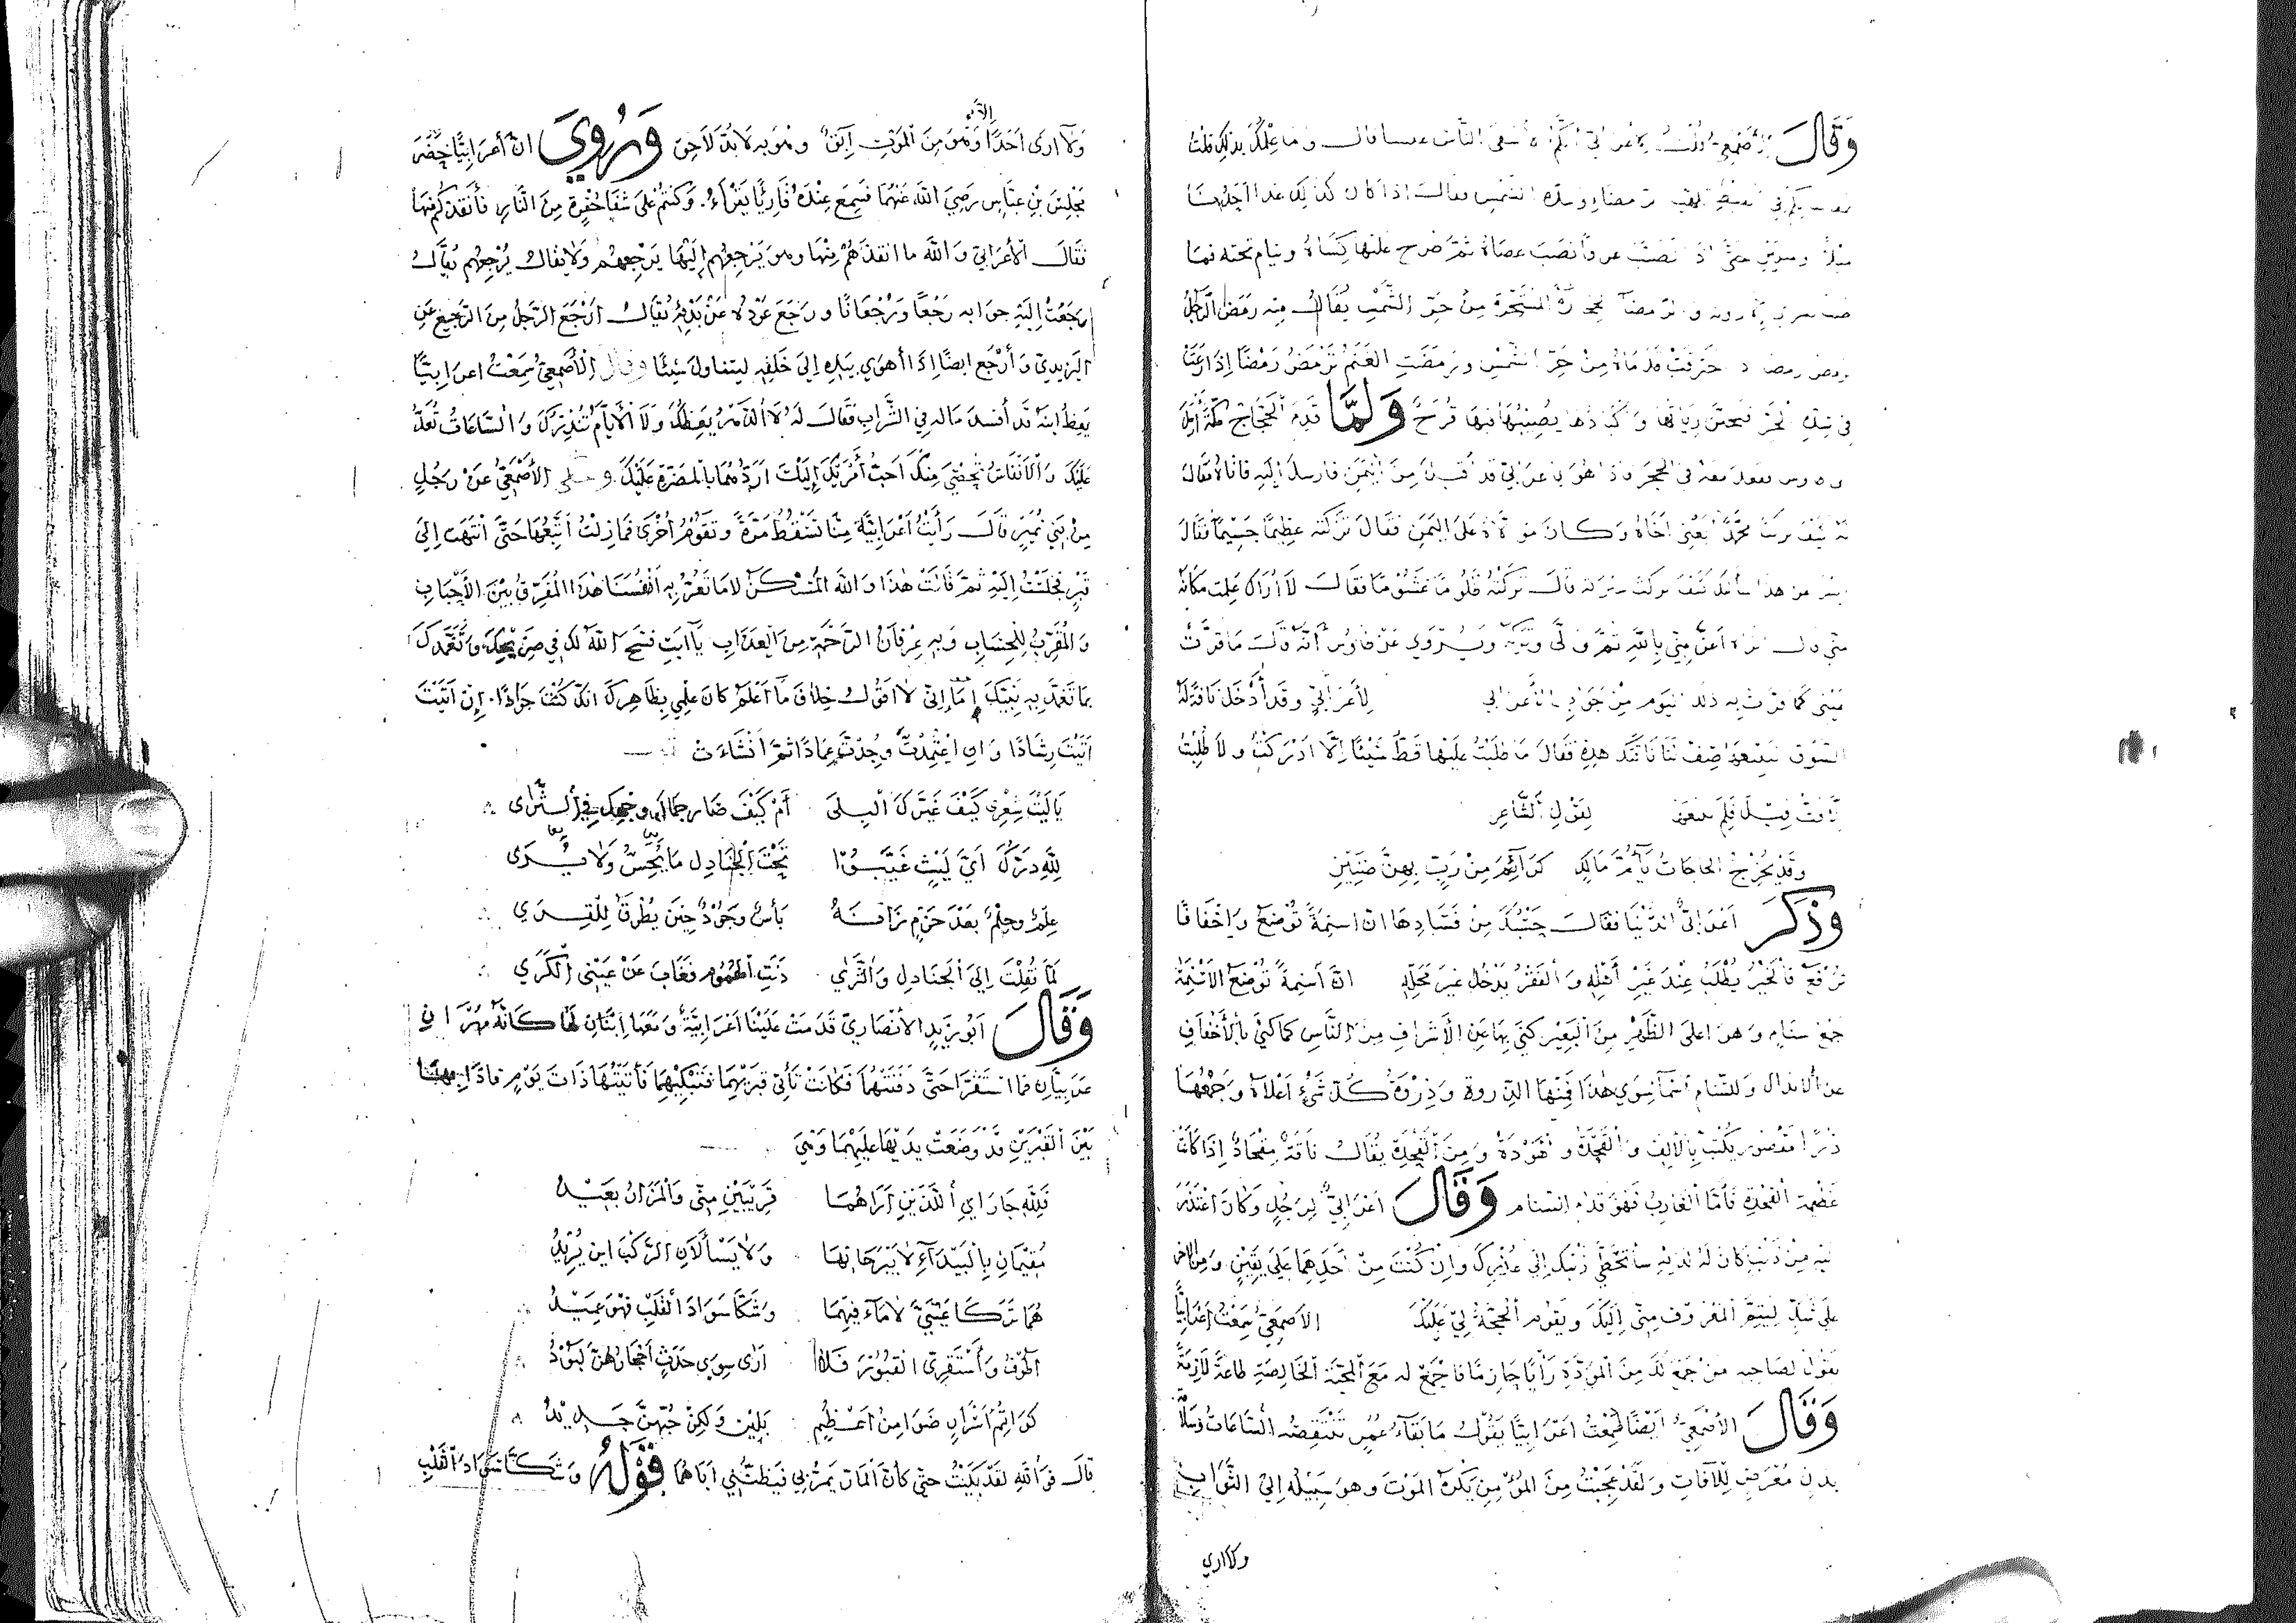 وَقَالَ الأصْمَعِيّ قُلْتُ لأعرابي الناس قال وما عِلْمُكَ بذلك قلت
الشمس فقال اذا كان كذلك غدا احدنا
ميلاً حتّى نَصَبَ عصاهُ ثم طرح عليها كِسَاهُ ونام تحته
مِنْ حَرِّ الشَّمْسِ يُقَالُ مِنه رَمَضَ الرَّجُلُ
حترقَتْ قَدَمَاهُ مِنْ حَرِّ الشَّمْسِ ورَمَضَتِ الغَنَمُ تَرْمَضُ رَمْضًا إِذَا رَعَتْ
فِي شِدَّةِ الحَرِّ يُصِيبُهَا فيها قُرَحٌ وَلمَّا قَدِمَ الحَجَّاجُ مَكَّةَ
في الحِجْرِ فإذا هُوَ بأعرابيّ قد أقبلَ مِنَ اليَمَنِ فارسلَ إليه فاتاه فقَالَ
محمدًا يَعْنِي أخَاهُ وَكَانَ وَلَّاهُ عَلَى اليَمَنِ فقالَ تَرَكتُه عظِيمًا جَسِيمًا فَقَالَ
ليس عن هذا سألتك كَيْفَ تركت قالَ تَرَكْتُهُ ظَلُومًا غَشُومًا فقالَ لَا أُرَاكَ عَلِمتَ مَكَانَهُ
منّي قال اعَزَّ مِنّي بِاللهِ ثمّ وَلّى وتَرَكَهُ ويُرْوِي عَنْ طاوُس أنّه قالَ مَا قرّتْ
عَيْني كَمَا قرّتْ به ذلك اليَوم مِنْ جَوَابِ الأعرابي لِأَعْرَابِيٍّ وقَد أدْخَلَ نَاقَةً لَهُ
السُّوقَ ليَبِيعَهَا صِفْ لنا نَاقتَك هذِهِ فقَالَ مَا طَلَبْتُ عَلَيْهَا قَطُّ شَيْئًا إلّا ادْرَكْتُ ولَا طُلِبْتُ
إلّا فُتُّ قيلَ فَلِمَ تبيعُهَا لِقَوْلِ الشَّاعِرِ
وَقَدْ يُخْرِجُ الحَاجَاتُ يَا أُمَّ مَالِكٍ كَرَائِمَ مِنْ رَبٍّ بِهِنَّ ضَنِينِ
وَذَكَرَ اعْرَابيٌّ الدُّنْيَا فَقَالَ حَسْبُكَ مِنْ فَسَادِهَا انّ اسْنِمَةً تُوضَعُ وَاخْفَافًا
تُرْفَعُ فَالخَيْرُ يُطْلَبُ عِنْدَ غَيْرِ أَهْلِهِ وَالفَقْرُ يَدْخُلُ غيرَ مَحَلِّهِ انّ أسنِمَةً تُوْضَعُ الأسْنِمَةُ
جَمْعُ سَنَامٍ وَهوَ اعلَى الظَّهْرِ مِنَ البَعِيرِ كنَى بِهَا عَنِ الأشْرَافِ مِنَ النَّاسِ كمَا كنَى بِالأَخْفَافِ
عن الانذال وَللسّنَامِ أسْمَا سِوَى هٰذَا فَمِنْهَا الذِّروة وَذِرْوَةُ كُلّ شَيْءٍ اَعْلاَهُ وَجَمْعُهَا
ذُرًا مَقْصُورٌ يُكْتَبُ بِالألِفِ وَالقَحَدَةُ وَهَوْدَةٌ وَمِنَ القَحَدَةِ يُقَالُ نَاقَةٌ مِقْحَادٌ إِذَا كَانَتْ
عَظِيمَةَ القَحَدَةِ فَأَمَّا الغَارِبُ فَهُوَ قدّامَ السّنام وَقَالَ اعْرَابِيٌّ لِرَجُلٍ وَكَانَ اعْتَذَرَ
إليهِ مِنْ ذَنْبٍ كانَ لَهُ لَديْهِ سأتخَطَّى ذَنْبَكَ إلى عُذْرِكَ وَانْ كُنْتُ مِنْ أحَدِهِمَا عَلَى يَقِينٍ وَمِنَ الاخَرِ
عَلى شَكٍّ لِيَتِمَّ المَعْرُوفُ مِنّي إِلَيْكَ ويَقُومَ الحُجّةُ لِي عَلَيْكَ الأَصْمَعِيُّ سَمِعْتُ اعْرَابِيًّا
يقُولُ لِصَاحِبِهِ مَنْ جَمَعَ لَكَ مِنَ المَوَدّةِ رَأْيًا جَازِمًا فَاجْمَعْ لَهُ مَعَ المحبَّةِ الخَالِصَةِ طَاعَةً لَازِمَةً
وَقَالَ الأصْمَعِيّ أيْضًا سَمِعْتُ اعْرَابِيًّا يَقُولُ مَا بَقَاءُ عُمُرٍ تَنْتَقِصُهُ السَّاعَاتُ وسَلَامَةُ
بدنٍ مُعَرَّضٍ لِلآفَاتِ وَلَقَدْ عَجِبْتُ مِنَ المُؤْمِنِ يَكْرَهُ المَوْتَ وَهوَ سَبِيلُهُ إِلَى الثَّوَابِ
ولا اري
وَلَا ارَى اَحَدًا إلّا وَهُوَ مِنَ المَوْتِ آبِقٌ وهُوَ بِهِ لَا بُدّ لَاحِقٌ وَرُوِيَ انّ أعرَابِيًّا حَضَرَ
مَجْلِسَ بْنِ عَبّاسٍ رَضِيَ اللهُ عَنْهُمَا فَسَمِعَ عِنْدَهُ قَارِئًا يَقْرَأُ وَكُنتُمْ عَلَى شَفَا حُفْرَةٍ مِنَ النَّارِ فَأَنْقَذَكُمْ مِنْهَا
فَقَالَ الأَعْرَابيّ وَاللهِ مَا انقَذَهُمْ مِنْهَا وهو يَرْجِعُهم إِلَيْهَا يَرْجِعُهُمْ وَلَا يُقَالُ يُرْجِعُهُم يُقَالُ
رَجَعْتُ إِلَيْهِ جوَابه رَجْعًا وَرُجْعَانًا ورَجَعَ عَوْدُهُ عَنْ بَدْئِهِ يُقَالُ ارْجَعَ الرَّجُلُ مِنَ الرَّجِيعِ عَنِ
اليَزِيدِيّ وَأَرْجَعَ ايضًا إِذَا أَهْوَى بِيَدِهِ إِلَى خَلْفِهِ لِيَتناولَ شَيْئًا وقال الأَصْمَعِيُّ سَمِعْتُ اعرَابِيًّا
يَعِظُ ابْنَهُ قَدْ أَفْسَدَ مَاله فِي الشَّرَابِ فَقَالَ لَهُ لَا الدّهْرُ يَعِظُكَ وَلَا الأَيّامُ تُنْذِرُكَ وَالسَّاعَاتُ تُعَدُّ
عَلَيْكَ وَالأَنْفَاسُ تُحْصَى مِنْكَ احَبُّ أَمْرَيْكَ إِلَيْكَ ارَدُّهُمَا بِالمَضَرَّةِ عَلَيْكَ وحكى الأَصْمَعِيُّ عَنْ رَجُلٍ
مِنْ بَنِي نُمَيْرٍ قَالَ رَأَيْتُ أعْرَابِيَّةً مِنَّا تَسْقُطُ مَرّةً وَتَقُوْمُ أُخْرَى فَمَا زِلْتُ أَتَّبِعُهَا حَتَّى انتَهَت إِلَى
قَبْرٍ فَجَلَسْتُ إِلَيْهِ ثمّ قَالَتْ هٰذَا وَالله المَسْكَنُ لا مَا تَغُرُّ بِهِ انْفُسَنَا هٰذَا المُفَرِّقُ بَيْنَ الأَحْبَابِ
وَالمُقَرِّبُ لِلْحِسَابِ وَبِهِ عِرْفَانُ الرَّحْمَةِ مِنَ العَذَابِ يَا أَبَتِ فسَحَ اللهُ لَكَ فِي ضَرِيحِكَ وَتَغَمَّدَكَ
بِمَا تَغَمّدَ بِهِ نَبِيَّكَ أَمَا إِنّي لا اقُولُ خِلافَ مَا أَعْلَمُ كَانَ عِلْمِي بِظَاهِرِكَ انّكَ كُنْتَ جَوَادًا إِنْ أُتِيْتَ
أُتِيْتَ رِشَادًا وَانِ اعْتُمِدْتَّ وُجِدْتَّ عِمَادًا ثمّ أنْشَاءَتْ
يَا لَيْتَ شِعْرِي كَيْفَ غَيَّرَكَ البِلَى أَمْ كَيْفَ صَارَ جَمَالُ وَجْهِكَ فِي الثَّرَى
لِلّهِ دَرُّكَ ايَّ لَيْثٍ غَيَّبُوا تَحْتَ الجَنَادِلِ مَا يُحِسُّ وَلَا يُرَى
عِلمٌ وحِلْمٌ بَعْدَ حَزْمٍ زَانَهُ بَأْسٌ وَجُوْدٌ حِينَ يُطْرَقُ لِلْقِرَى
لَمّا نُقِلْتَ إِلَى الجَنَادِلِ وَالثَّرَى دَنَتِ الهُمُومُ فَغَابَ عَنْ عَيْنِي الكَرَى
وَقَالَ ابُو زَيْدٍ الأَنْصَارِيّ قَدَمَتْ عَلَيْنَا اعْرَابِيَّةٌ وَمَعَهَا ابْنَانِ لَهَا كَأَنَّهُ مُهْرَانِ
عَرَبِيَّانِ فمَا اسْتَقَرَّا حَتَّى دَفَنَتْهُمَا فَكَانَتْ تَأْتِي قَبْرَيْهِمَا فَتَبْكِيهِمَا فَأَتَيْتُهَا ذَاتَ يَوْمٍ فَاذَا بِهَا
بَيْنَ القَبْرَيْنِ قَدْ وَضَعَتْ يَدَيْهَا عَلَيْهِمَا وَهِيَ
فَلِلّهِ جَارَايَ اللَّذَيْنِ اَرَاهُمَا قَرِيْبَيْنِ مِنّي وَالمَزَارُ بَعِيْدُ
مُقِيْمَانِ بِالْبَيْدَاءِ لَا يَبْرَحَانِهَا وَلَا يَسْأَلَانِ الرَّكْبَ اينَ يُرِيْدُ
هُمَا تَرَكَا عَيْنَيَّ لَا مَاءَ فِيهِمَا وَشَكَّا سَوَادَ القَلْبِ فَهُوَ عَمِيْدُ
أَطُوْفُ وَأَسْتَقْرِي القُبُوْرَ فَلَا ارَى سِوَى حَدَثٍ أَحْجَارُهُنَّ لُبُوْدُ
كَوَاتِمُ اَسْرَارٍ ضَوَامِنُ اَعْظُمٍ بَلِيْنَ وَلكِنْ حُبُّهِنَّ جَدِيْدُ
قَالَ فَوَاللهِ لَقَدْ بَكَيْتُ حتّى كَأنّ المَارَّ يَمُرُّ بِي فَيَظُنُّنِي ابَاهُمَا قَوْلُهُ وَشَكَّا سَوَادَ القَلْبِ